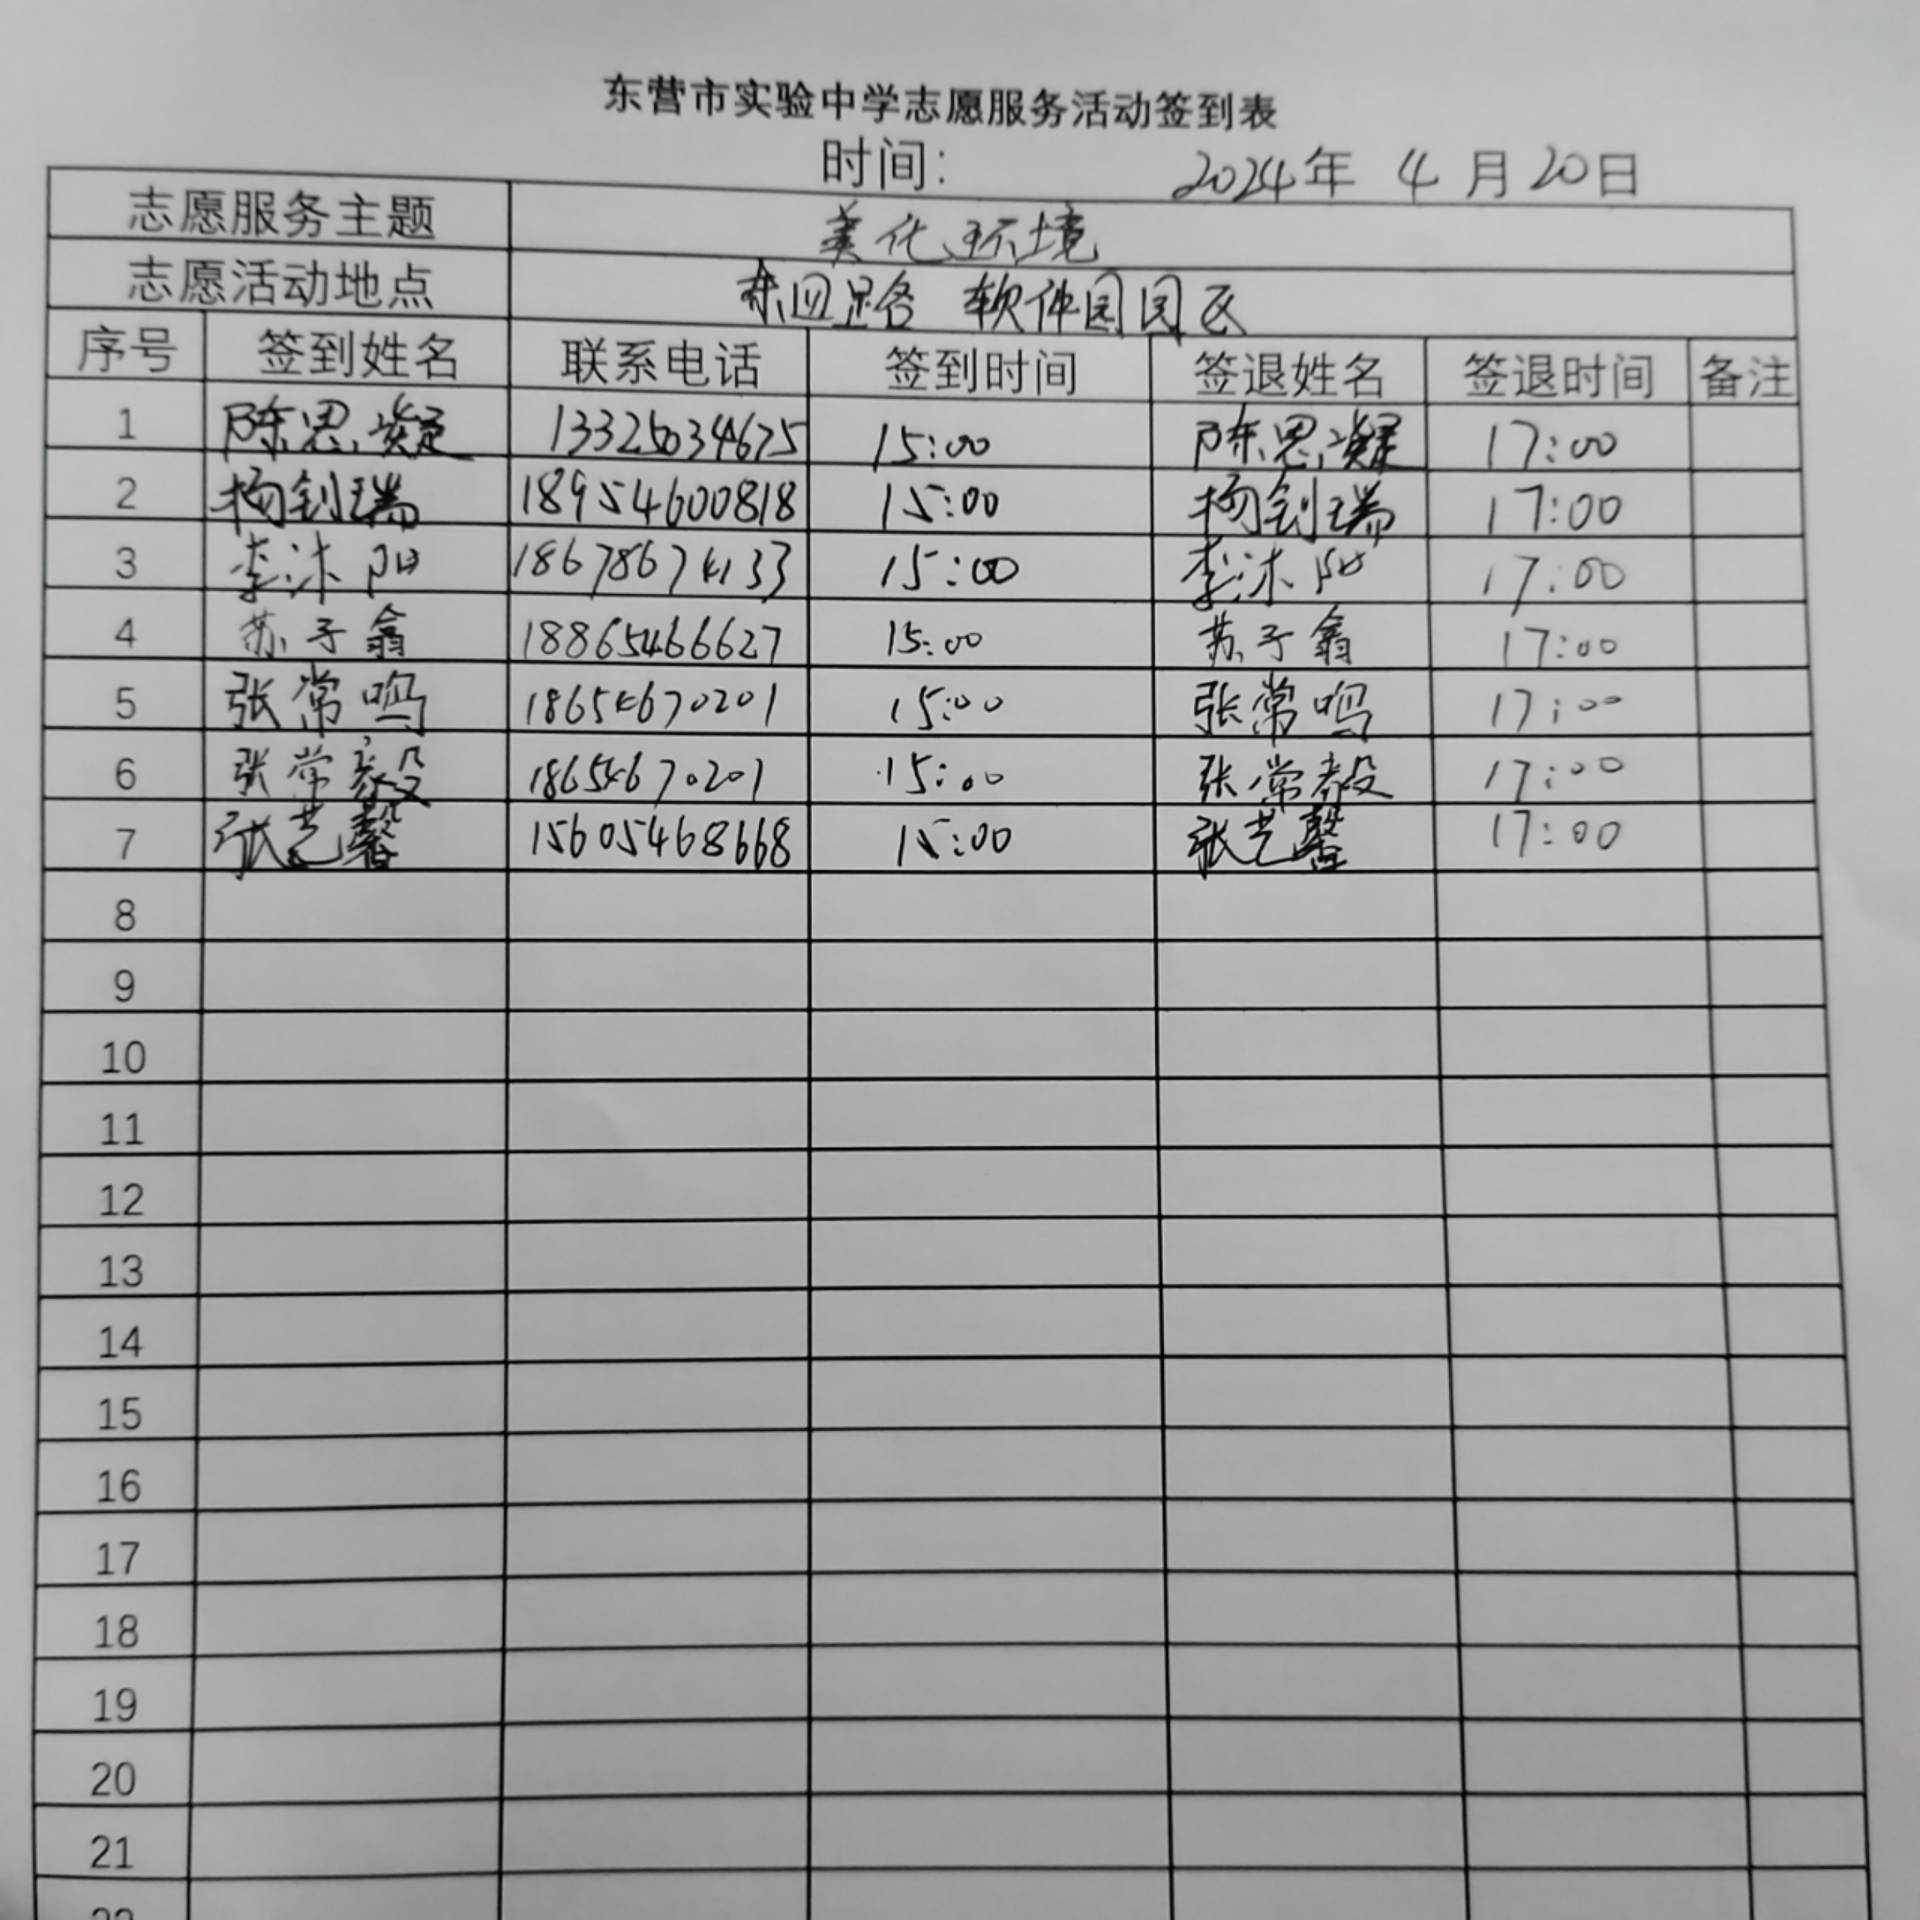 东营市实验中学志愿服务活动签到表
时间: 2024年 4月20日
志愿服务主题 美化环境
志愿活动地点 东四路 软件园园区
序号 签到姓名 联系电话 签到时间 签退姓名 签退时间 备注
1 陈思凝 13325034675 15:00 陈思凝 17:00
2 杨钊瑞 18954600818 15:00 杨钊瑞 17:00
3 李沐阳 18678674133 15:00 李沐阳 17:00
4 苏子翕 18865466627 15:00 苏子翕 17:00
5 张常鸣 18654670201 15:00 张常鸣 17:00
6 张常毅 18654670201 15:00 张常毅 17:00
7 张艺馨 15605468668 15:00 张艺馨 17:00
8
9
10
11
12
13
14
15
16
17
18
19
20
21